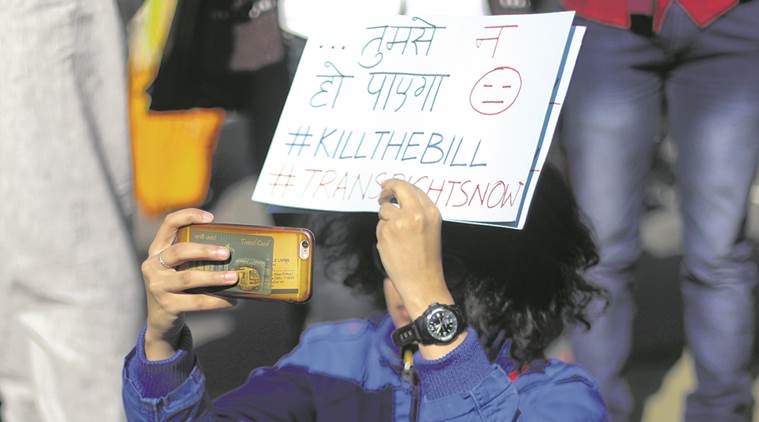 ... तुमसे न
हो पाएगा
#KILLTHEBILL
#TRANSRIGHTSNOW
Travel Card